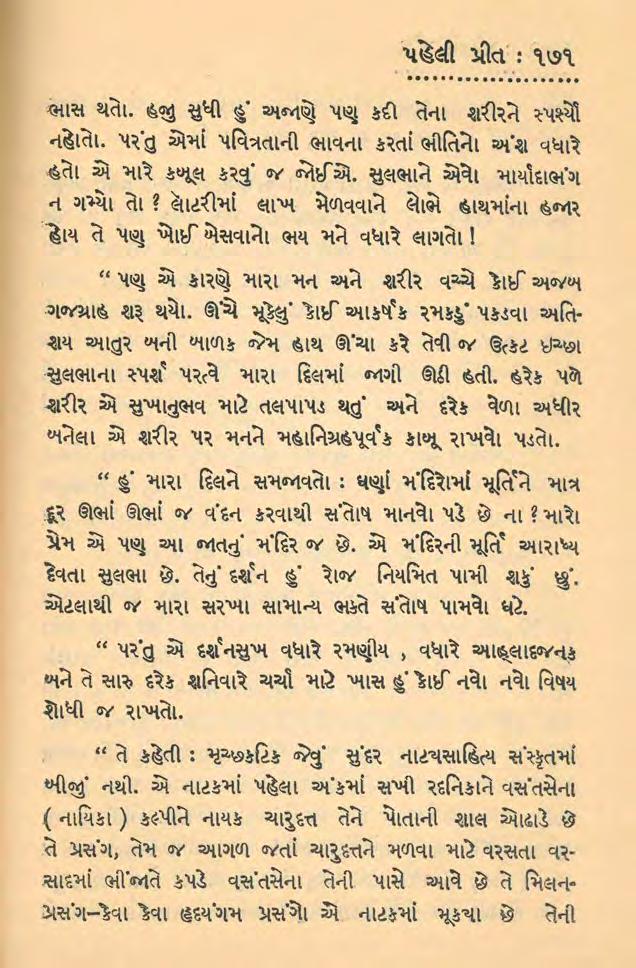 પહેલી પ્રીત : ૧૭૧
ભાસ થતો. હજુ સુધી હું અજાણે પણ કદી તેના શરીરને સ્પર્શ્યો
નહોતો. પરંતુ એમાં પવિત્રતાની ભાવના કરતાં ભીતિનો અંશ વધારે
હતો એ મારે કબૂલ કરવું જ જોઈએ. સુલભાને એવો માર્યાદાભંગ
ન ગમ્યો તો ? લોટરીમાં લાખ મેળવવાને લોભે હાથમાંના હજાર
હોય તે પણ ખોઈ બેસવાનો ભય મને વધારે લાગતો !
“ પણ એ કારણે મારા મન અને શરીર વચ્ચે કોઈ અજબ
ગજગ્રાહ શરૂ થયો. ઊંચે મૂકેલું કોઈ આકર્ષક રમકડું પકડવા અતિ-
શય આતુર બની બાળક જેમ હાથ ઊંચા કરે તેવી જ ઉત્કટ ઇચ્છા
સુલભાના સ્પર્શ પરત્વે મારા દિલમાં જાગી ઊઠી હતી. હરેક પળે
શરીર એ સુખાનુભવ માટે તલપાપડ થતું અને દરેક વેળા અધીર
બનેલા એ શરીર પર મનને મહાનિગ્રહપૂર્વક કાબૂ રાખવો પડતો.
“ હું મારા દિલને સમજાવતો : ઘણાં મંદિરોમાં મૂર્તિને માત્ર
દૂર ઊભાં ઊભાં જ વંદન કરવાથી સંતોષ માનવો પડે છે ના ? મારો
પ્રેમ એ પણ આ જાતનું મંદિર જ છે. એ મંદિરની મૂર્તિ આરાધ્ય
દેવતા સુલભા છે. તેનું દર્શન હું રોજ નિયમિત પામી શકું છું.
એટલાથી જ મારા સરખા સામાન્ય ભક્તે સંતોષ પામવો ઘટે.
“ પરંતુ એ દર્શનસુખ વધારે રમણીય , વધારે આહ્‌લાદજનક
બને તે સારુ દરેક શનિવારે ચર્ચા માટે ખાસ હું કોઈ નવો નવો વિષય
શોધી જ રાખતો.
“ તે કહેતી : મૃચ્છકટિક જેવું સુંદર નાટ્યસાહિત્ય સંસ્કૃતમાં
બીજું નથી. એ નાટકમાં પહેલા અંકમાં સખી રદનિકાને વસંતસેના
( નાયિકા ) કલ્પીને નાયક ચારુદત્ત તેને પોતાની શાલ ઓઢાડે છે
તે પ્રસંગ, તેમ જ આગળ જતાં ચારુદત્તને મળવા માટે વરસતા વર-
સાદમાં ભીંજાતે કપડે વસંતસેના તેની પાસે આવે છે તે મિલન-
પ્રસંગ—કેવા કેવા હૃદયંગમ પ્રસંગો એ નાટકમાં મૂક્યા છે તેની